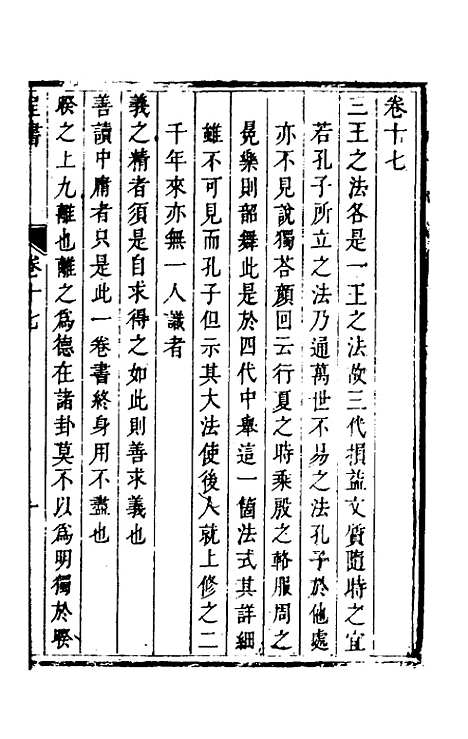 卷十七
三王之法各是一王之法故三代損益文質隨時之宜
若孔子所立之法乃通萬世不易之法孔子於他處
亦不見說獨荅顏回云行夏之時乘殷之輅服周之
冕樂則韶舞此是於四代中舉這一箇法式其詳細
雖不可見而孔子但示其大法使後人就上修之二
千年來亦無一人識者
義之精者須是自求得之如此則善求義也
善讀中庸者只是此一卷書終身用不盡也
睽之上九離也離之爲德在諸卦莫不以爲明獨於睽
卷十七